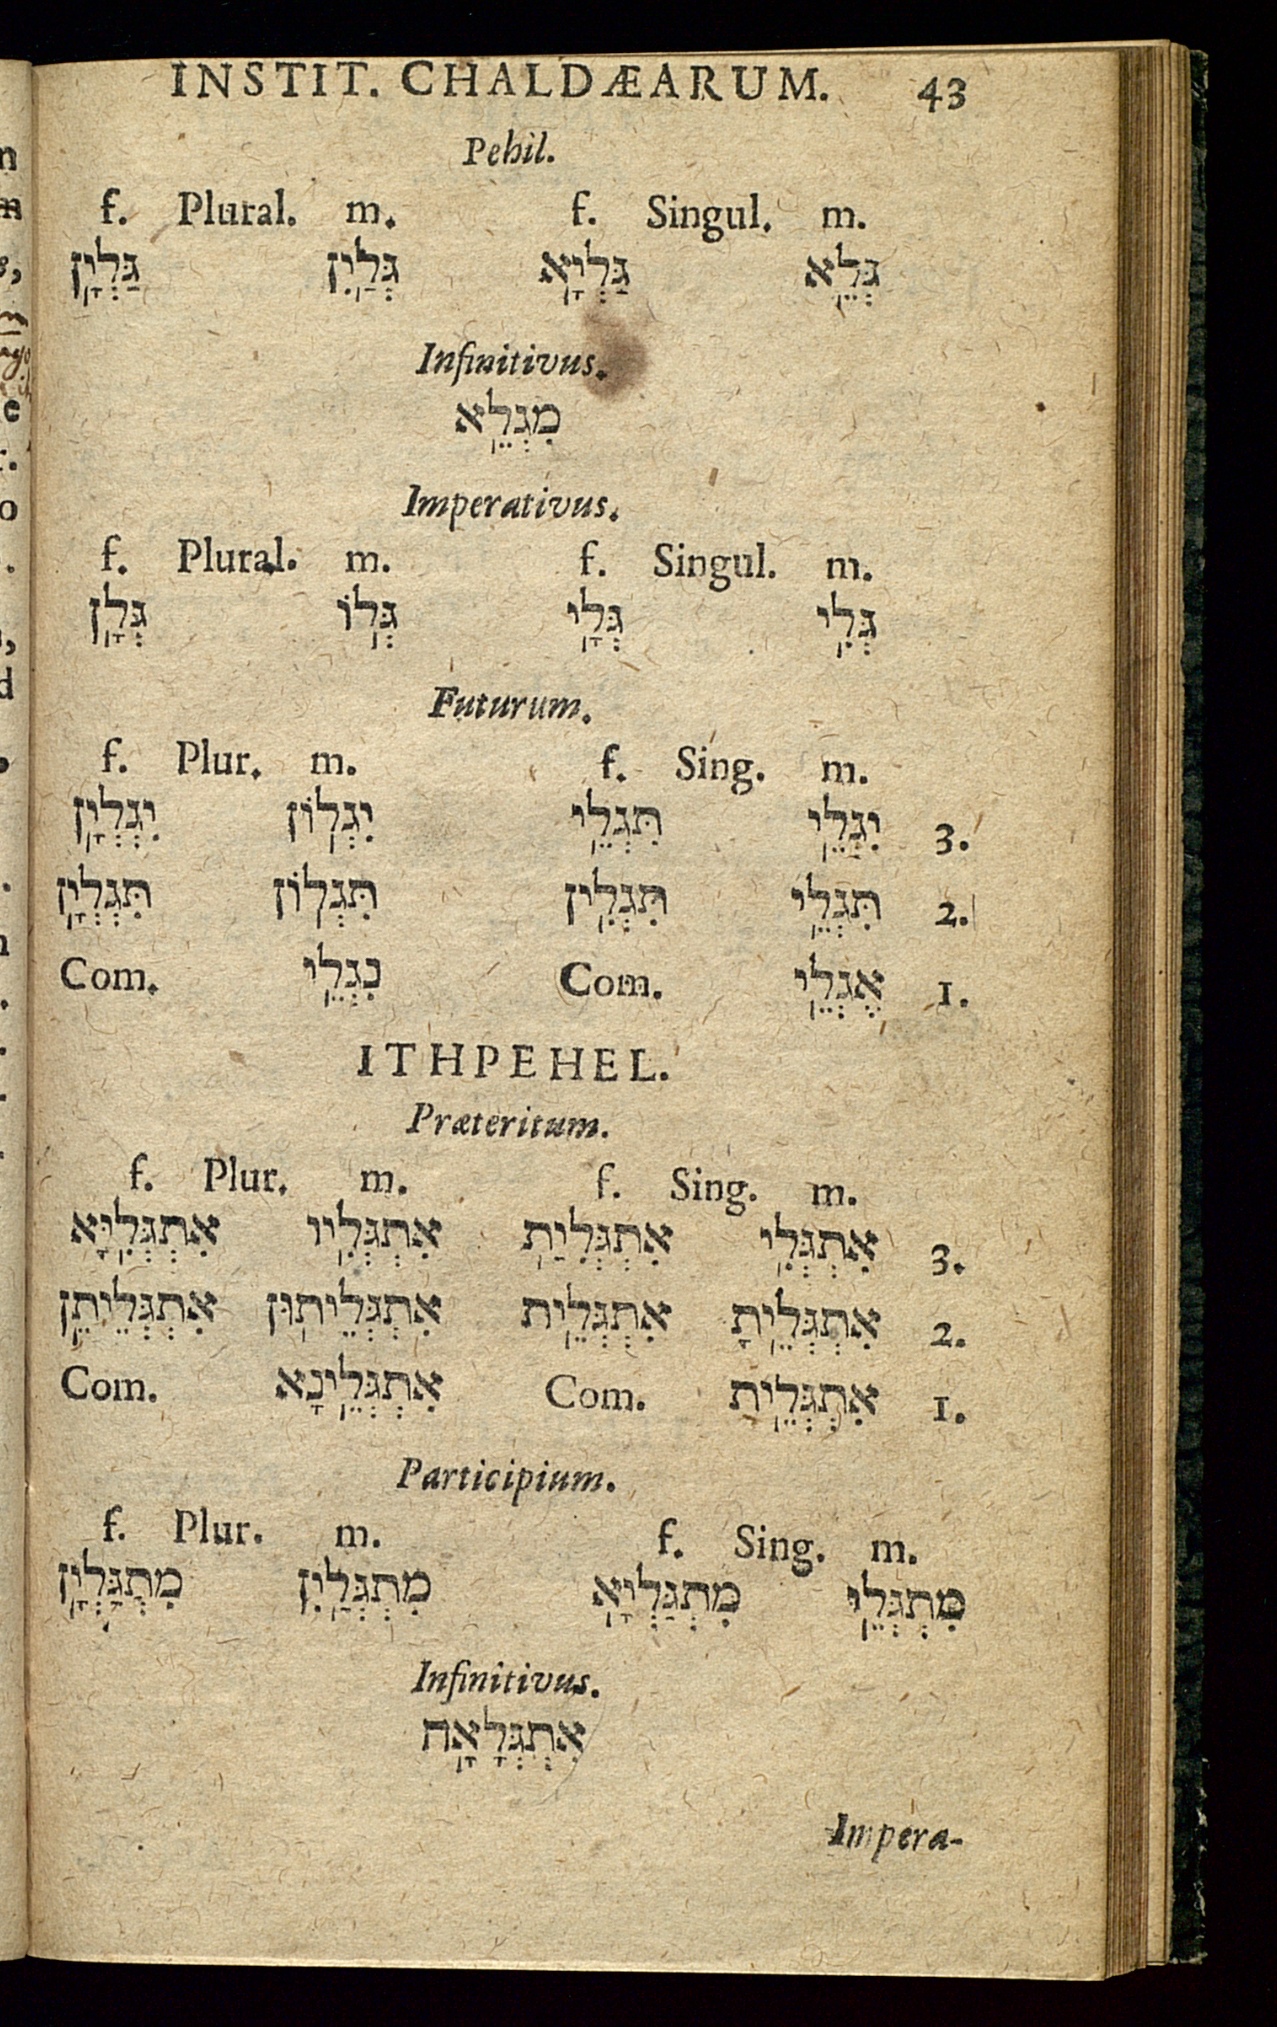 INSTIT. CHALDÆARUM. 43
Pehil.
f. Plural. m. f. Singul. m.
גַּלְיָן גְּלַיִן גַּלְיָא גְּלֵא
Infinitivus.
מִגְלֵא
Imperativus.
f. Plural. m. f. Singul. m.
גְּלָן גְּלוֹ גְּלָי גְּלִי
Futurum.
f. Plur. m. f. Sing. m.
יִגְלְיָן יִגְלוֹן תִּגְלֵי יִגְלֵי 3.
תִּגְלְיָן תִּגְלוֹן תִּגְלִין תִּגְלֵי 2.
Com. נִגְלֵי Com. אֶגְלֵי 1.
ITHPEHEL.
Præteritum.
f. Plur. m. f. Sing. m.
אִתְגְּלִיָּא אִתְגְּלִיו אִתְגְּלִיַת אִתְגְּלִי 3.
אִתְגְּלֵיתֵן אִתְגְּלֵיתוּן אִתְגְּלֵית אִתְגְּלֵיתָ 2.
Com. אִתְגְּלֵינָא Com. אִתְגְּלֵית 1.
Participium.
f. Plur. m. f. Sing. m.
מִתְגַּלְיָן מִתְגְּלַיִן מִתְגַּלְיָא מִתְגְּלֵי
Infinitivus.
אִתְגְּלָאָה
Impera-